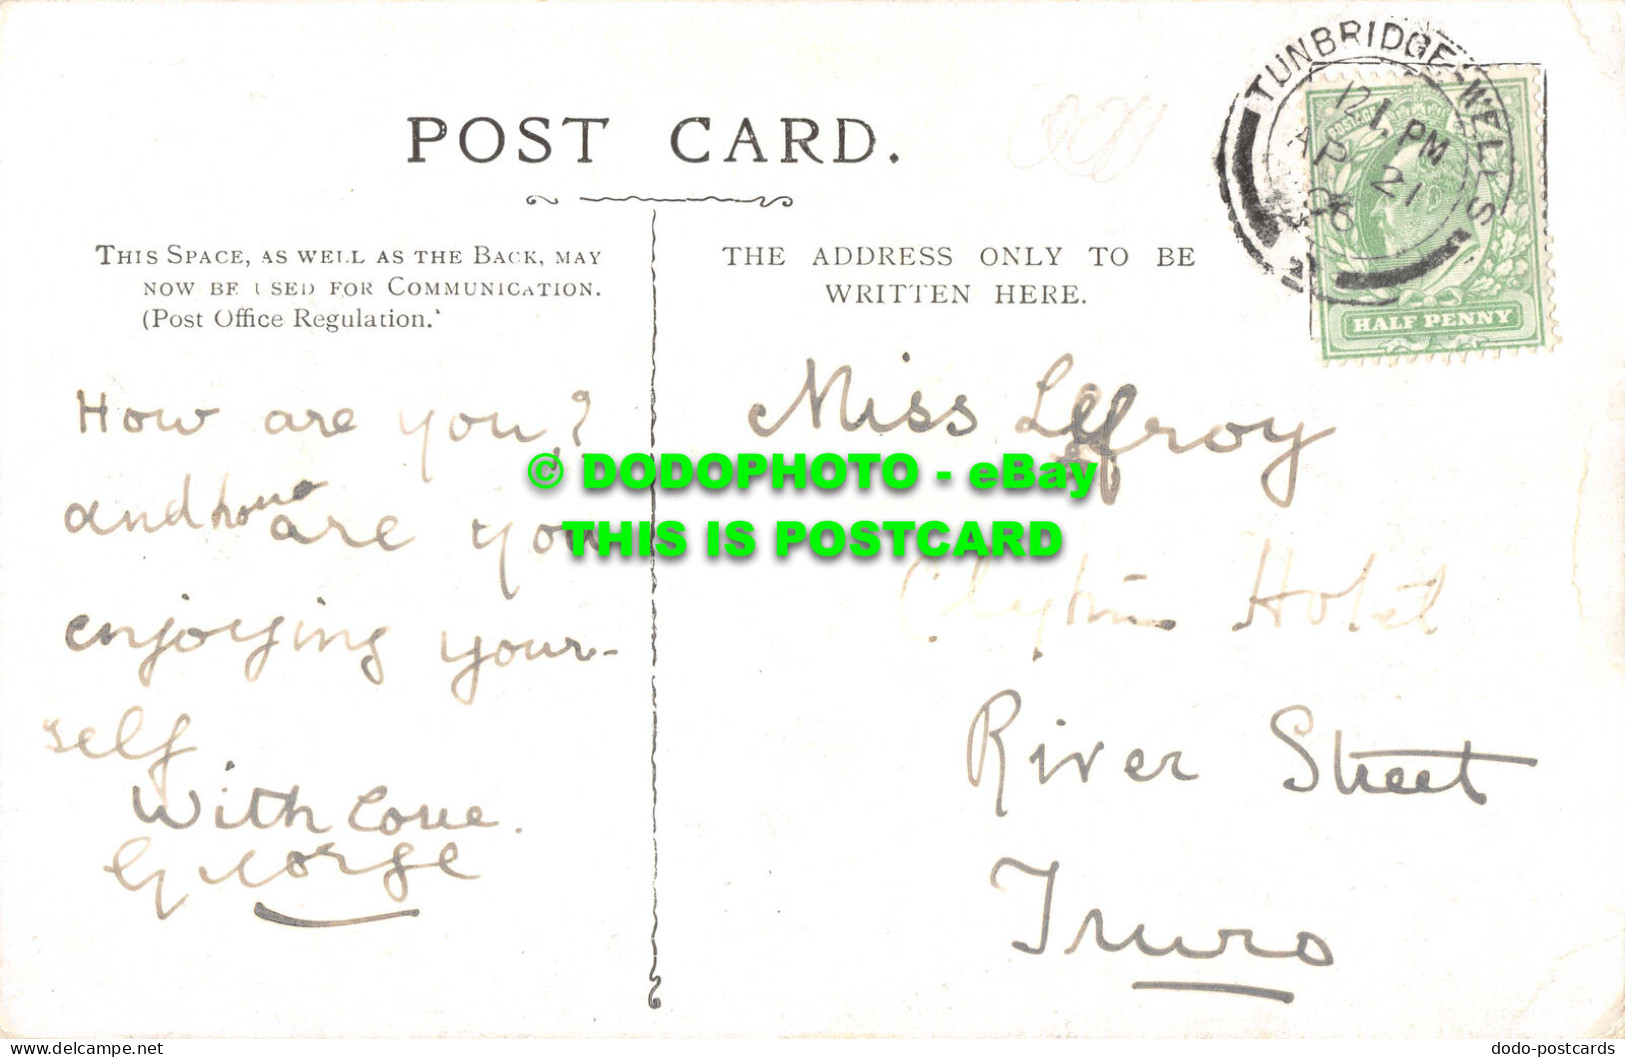 POST CARD.
THIS SPACE, AS WELL AS THE BACK, MAY
NOW BE USED FOR COMMUNICATION.
(Post Office Regulation.
THE ADDRESS ONLY TO BE
WRITTEN HERE.
TUNBRIDGE WELLS
121 PM
AP 21
06
2
HALF PENNY
How are you?
and how are you
enjoying your-
self
With Love.
George
Miss Leffroy
Hotel
River Street
Truro
© DODOPHOTO - eBay
THIS IS POSTCARD
www.delcampe.net
dodo-postcards